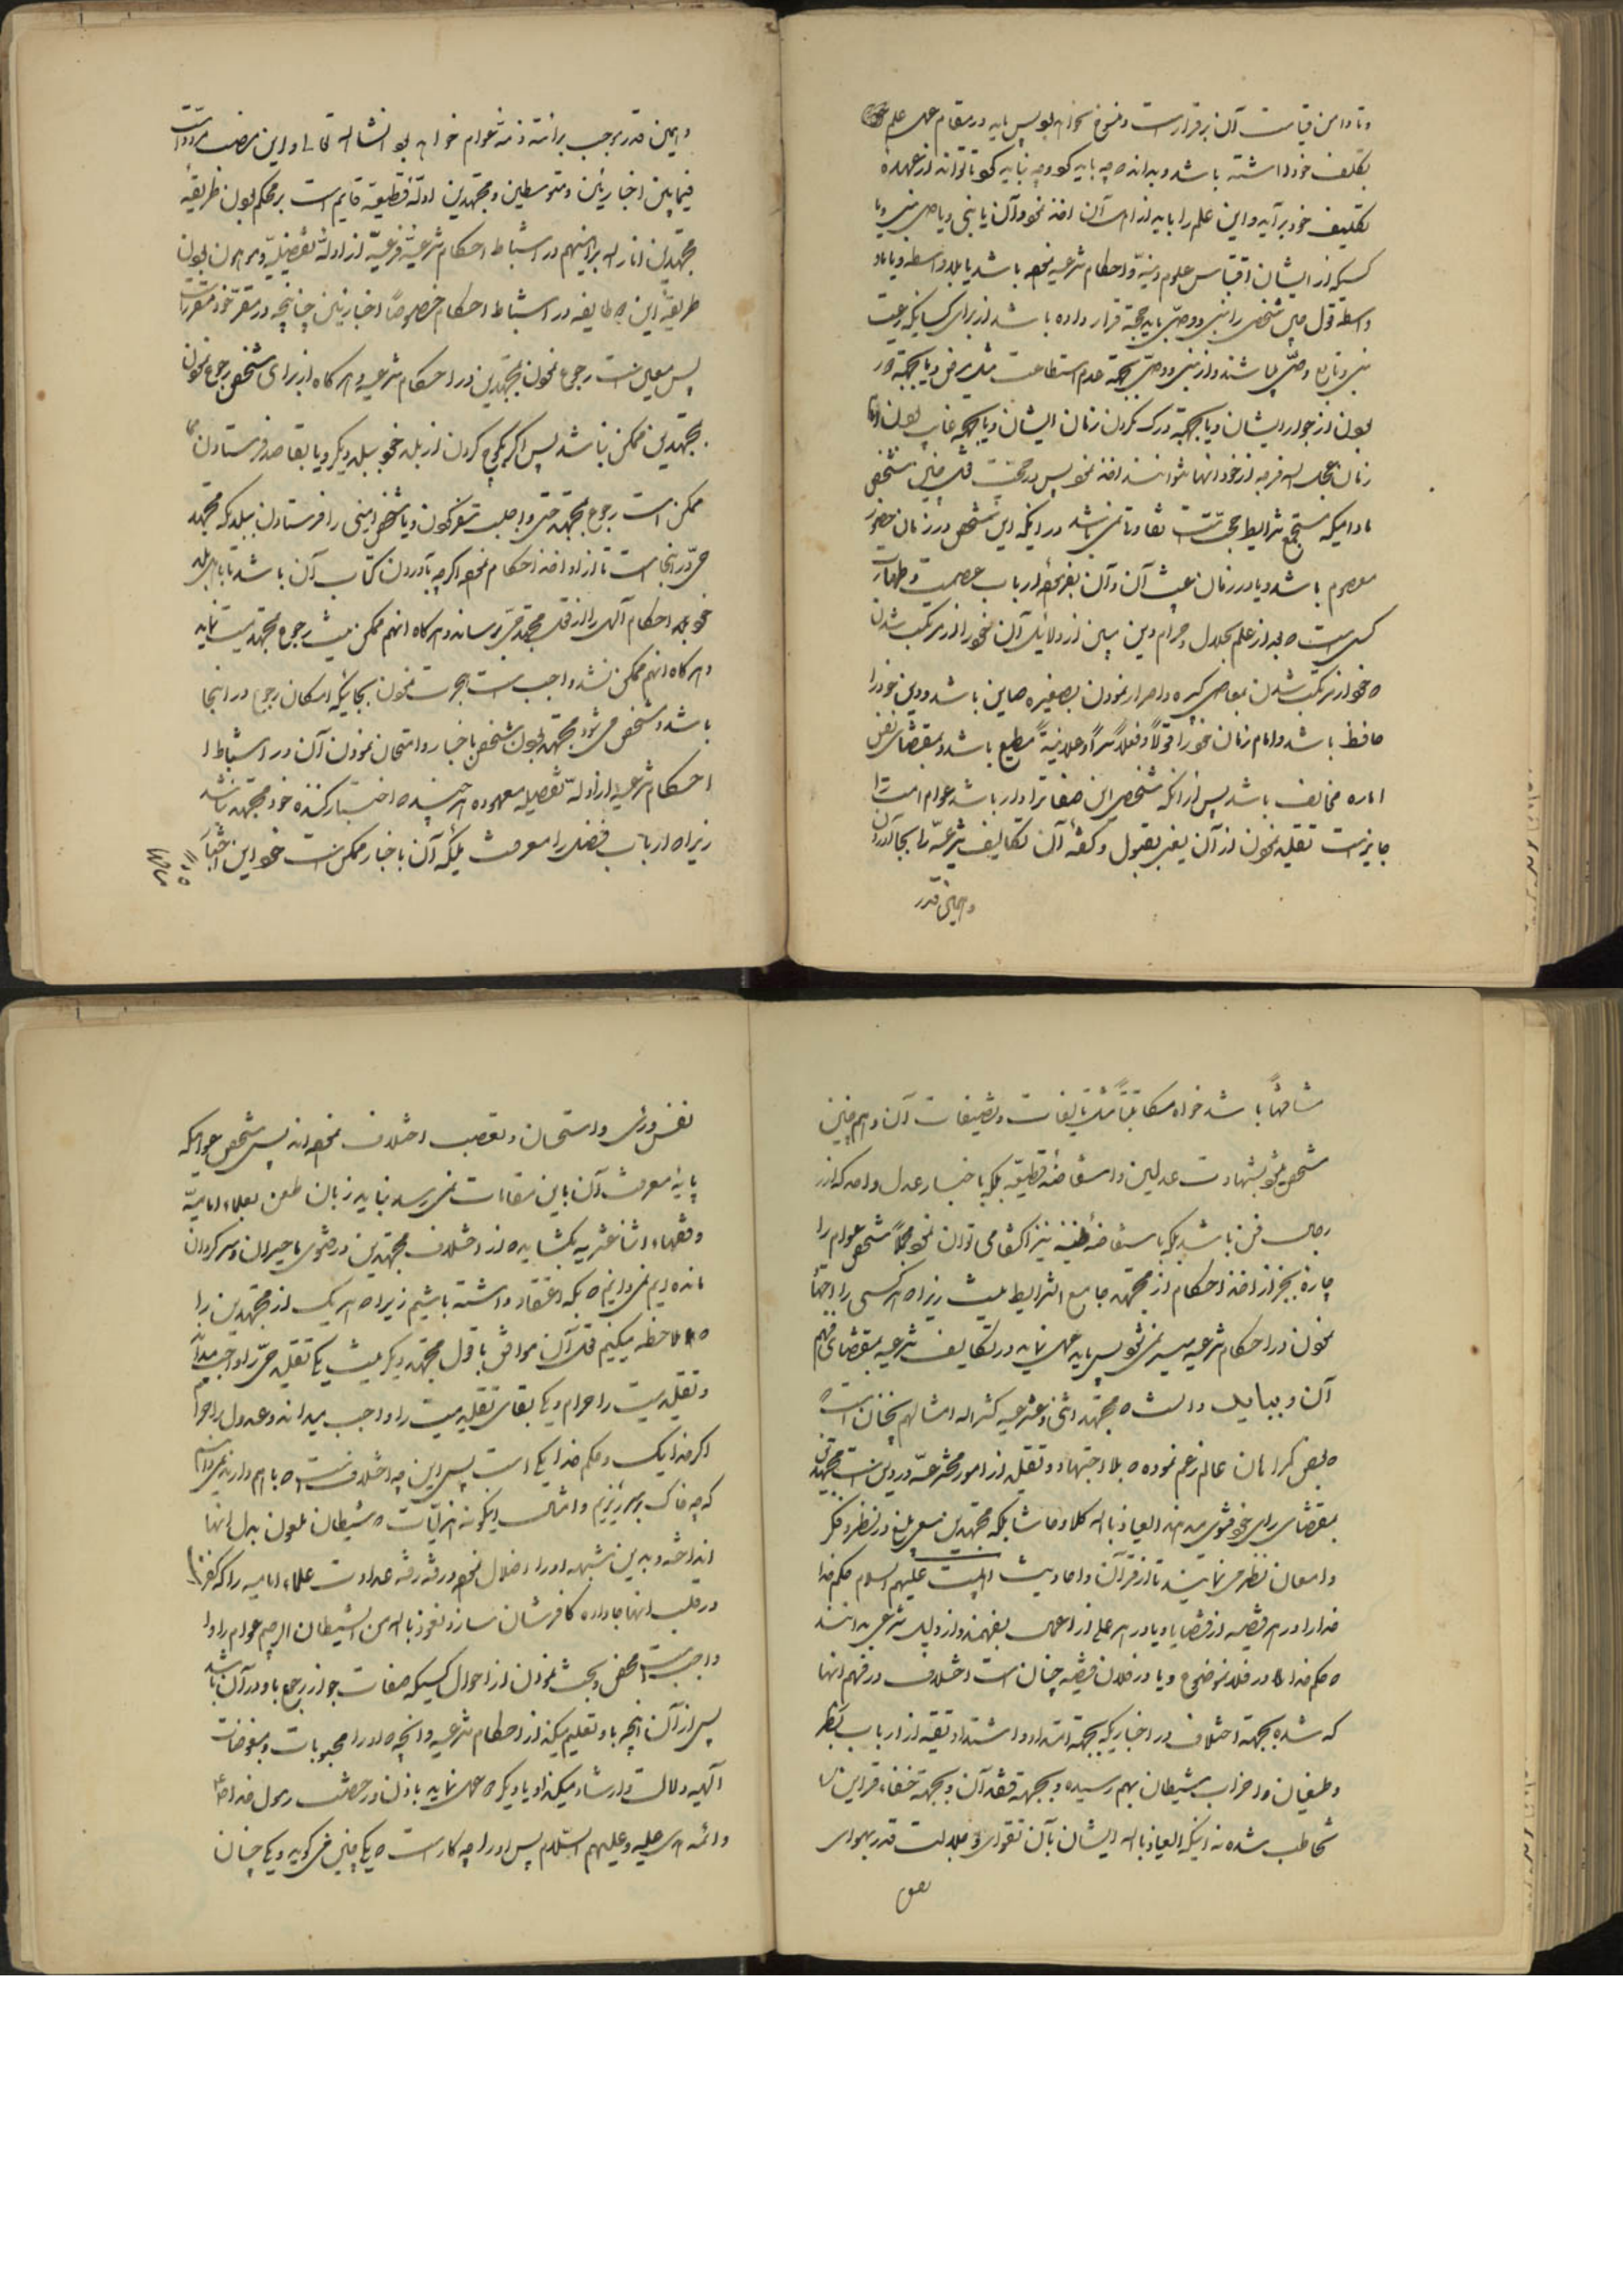 و تا دامن قیامت آن برقرار است و منسوخ نخواهد بود پس باید در مقام عمل علم
بتکلیف خود داشته باشد و بداند که چه باید کرد و چه نباید کرد تا تواند از عهدهٔ
تکلیف خود برآید و این علم را باید از اهل آن اخذ نمود و آن یا نبی و یا وصی نبی و یا
کسیکه از ایشان اقتباس علوم دینیّه و احکام شرعیه نموده باشد یا بلا واسطه و یا با
واسطه قول چنین شخص را نبی و وصی باید حجّة قرار داده باشد از برای کسانیکه رعیت
نبی و تابع وصیّ باشند و از نبی و وصی بجهة عدم استطاعت مثل مرض و یا بجهة دور
بودن از جوار ایشان و یا بجهة درک نکردن زمان ایشان و یا بجهة غایب بودن امام
زمان عجل الله فرجه از خود آنها نتوانستند اخذ نمود پس در حجیّت قول چنین شخص
مادامیکه مستجمع شرایط حجیّت است تفاوت نمی باشد در اینکه این شخص در زمان حضور
معصوم باشد و یا در زمان غیبت آن و آن بفرموده ارباب عصمت و طهارت
کسی است که بعد از علم بحلال و حرام دین مبین از دلایل آن خود را از مرتکب شدن
که خود از مرتکب شدن بمعاصی کبیره و اصرار نمودن بصغیره صاین باشد و دین خود را
حافظ باشد و امام زمان خود را قولاً و فعلاً سرّاً و علانیةً مطیع باشد و بمقتضای نفس
اماره مخالف باشد پس از آنکه شخص این صفات را دارا باشد عوام امت را
جایز است تقلید نمودن از آن یعنی بقبول و گفتهٔ آن تکالیف شرعیّه را بجا آوردن
و همین قدر
و همین قدر موجب برائة ذمهٔ عوام خواهد بود انشاء الله تعالی و این مرض
فیما بین اخباریّین و متوسطین و مجتهدین ادلّهٔ قطعیّه قایم است بر محکم بودن طریقهٔ
مجتهدین انار الله براهینهم در استنباط احکام شرعیّهٔ فرعیّه از ادلّهٔ تفصیلیّه و موهون بودن
طریقهٔ این دو طایفه در استنباط احکام خصوصاً اخباریّین چنانچه در مقرّ خود مقرّر است
پس معیّن است رجوع نمودن بمجتهدین در احکام شرعیه و هرگاه از برای شخص رجوع نمودن
بمجتهدین ممکن نباشد پس اگر بکوچ کردن از بلد خود ببلد دیگر و یا بقاصد فرستادن
ممکن است رجوع بمجتهد حیّ واجب سفر نمودن و یا شخص امینی را فرستادن ببلدیکه مجتهد
حیّ در آنجا است تا از او اخذ احکام نموده اگرچه بآوردن کتاب آن باشد تا باهل بلد
خود احکام آلهی را از قول مجتهد حیّ برساند و هرگاه آنهم ممکن نیست رجوع بمجتهد میّت نماید
و هرگاه آنهم ممکن نشد واجب است هجرت نمودن بجائیکه امکان رجوع در آنجا
باشد و مشخص می شود مجتهد بودن شخص باختبار و امتحان نمودن آن در استنباط
احکام شرعیه از ادلّهٔ تفصیلیه معهوده هرچند که اختبار کننده خود مجتهد نباشد
زیرا که ارباب فضل را معرفت ملکهٔ آن باختبار ممکن است خواه این اختبار
شافهةً باشد خواه مکاتبةً مثل تألیفات و تصنیفات آن و همچنین
مشخص میشود بشهادت عدلین و استفاضهٔ قطعیّه بلکه باخبار عدل واحد که از
رجال فن باشد بلکه باستفاضهٔ ظنیّه نیز اکتفا می توان نمود مجملاً شخص عوام را
چاره بجز از اخذ احکام از مجتهد جامع الشرایط نیست زیرا که هر کسی را اجتهاد
نمودن در احکام شرعیه میسر نمی شود پس باید عمل نماید در تکالیف شرعیه بمقتضای فهم
آن و نباید دانست که مجتهد اثنی عشریه کثر الله امثالهم بخلاف است
که بعض گمراهان عالم زعم نموده که بلا اجتهاد و تقلید از امور مخترعه در دین است مجتهدین
بمقتضای رأی خود فتوی میدهند العیاذ بالله کلا و حاشا بلکه مجتهدین سعی بلیغ در نظر و فکر
و امعان نظر می نمایند تا از قرآن و احادیث اهلبیت علیهم السلام حکم خدا
خدا را در هر قضیه از قضایا و یا در هر عملی از اعمال بفهمند و از دلیل شرعی بدانند
که حکم خدا در فلان موضوع و یا در فلان قضیه چنان است اختلاف در فهم آنها
که شده بجهة اختلاف در اخباریکه بجهة امتداد و اشتداد تقیّه از ارباب
و طغیان و احزاب شیطان بهم رسیده و بجهة فقدان و بجهة خفاء قراین
تخاطب شده نه اینکه العیاذ بالله ایشان بآن تقوی و جلالت قدر بهوای
نفس
نفس و رأی و استحسان و تعصب اختلاف نموده اند پس شخص عوامیکه
پایهٔ معرفت آن باین مقامات نمی رسد نباید زبان طعن بعلماء امامیّه
و فقهاء اثنا عشریه بگشاید که از اختلاف مجتهدین در فتوی ما حیران و سرگردان
مانده ایم نمی دانیم که بکه اعتقاد داشته باشیم زیرا که هر یک از مجتهدین را
که ملاحظه میکنیم قول آن موافق با قول مجتهد دیگر نیست یکی تقلید حیّ را واجب میداند
و تقلید میت را حرام و یکی بقای تقلید میت را واجب میداند و عدول را حرام
اگر خدا یک و حکم خدا یکی است پس این چه اختلاف است که با هم دارند نمی دانیم
که چه خاک بسر ریزیم و امثال اینگونه هذیانات که شیطان ملعون بدل آنها
انداخته و بدین شبهه او را اضلال نموده و رفته رفته عداوت علماء امامیه را که کفر است
در قلب آنها جا داده کافرشان سازد نعوذ بالله من الشیطان الرجیم عوام را
واجب است تفحص و بحث نمودن از احوال کسیکه صفات جواز رجوع باو در آن باشد
پس از آن آنچه باو تعلیم میکند از احکام شرعیه و آنچه که او را محبوبات و مبغوضات
آلهیه دلالت و ارشاد میکند او یا دیگری که عمل نماید باذن و رخصت رسول خدا
و ائمه هدی علیه و علیهم السّلام پس او را چه کار است که یکی چنین می گوید و یکی چنان